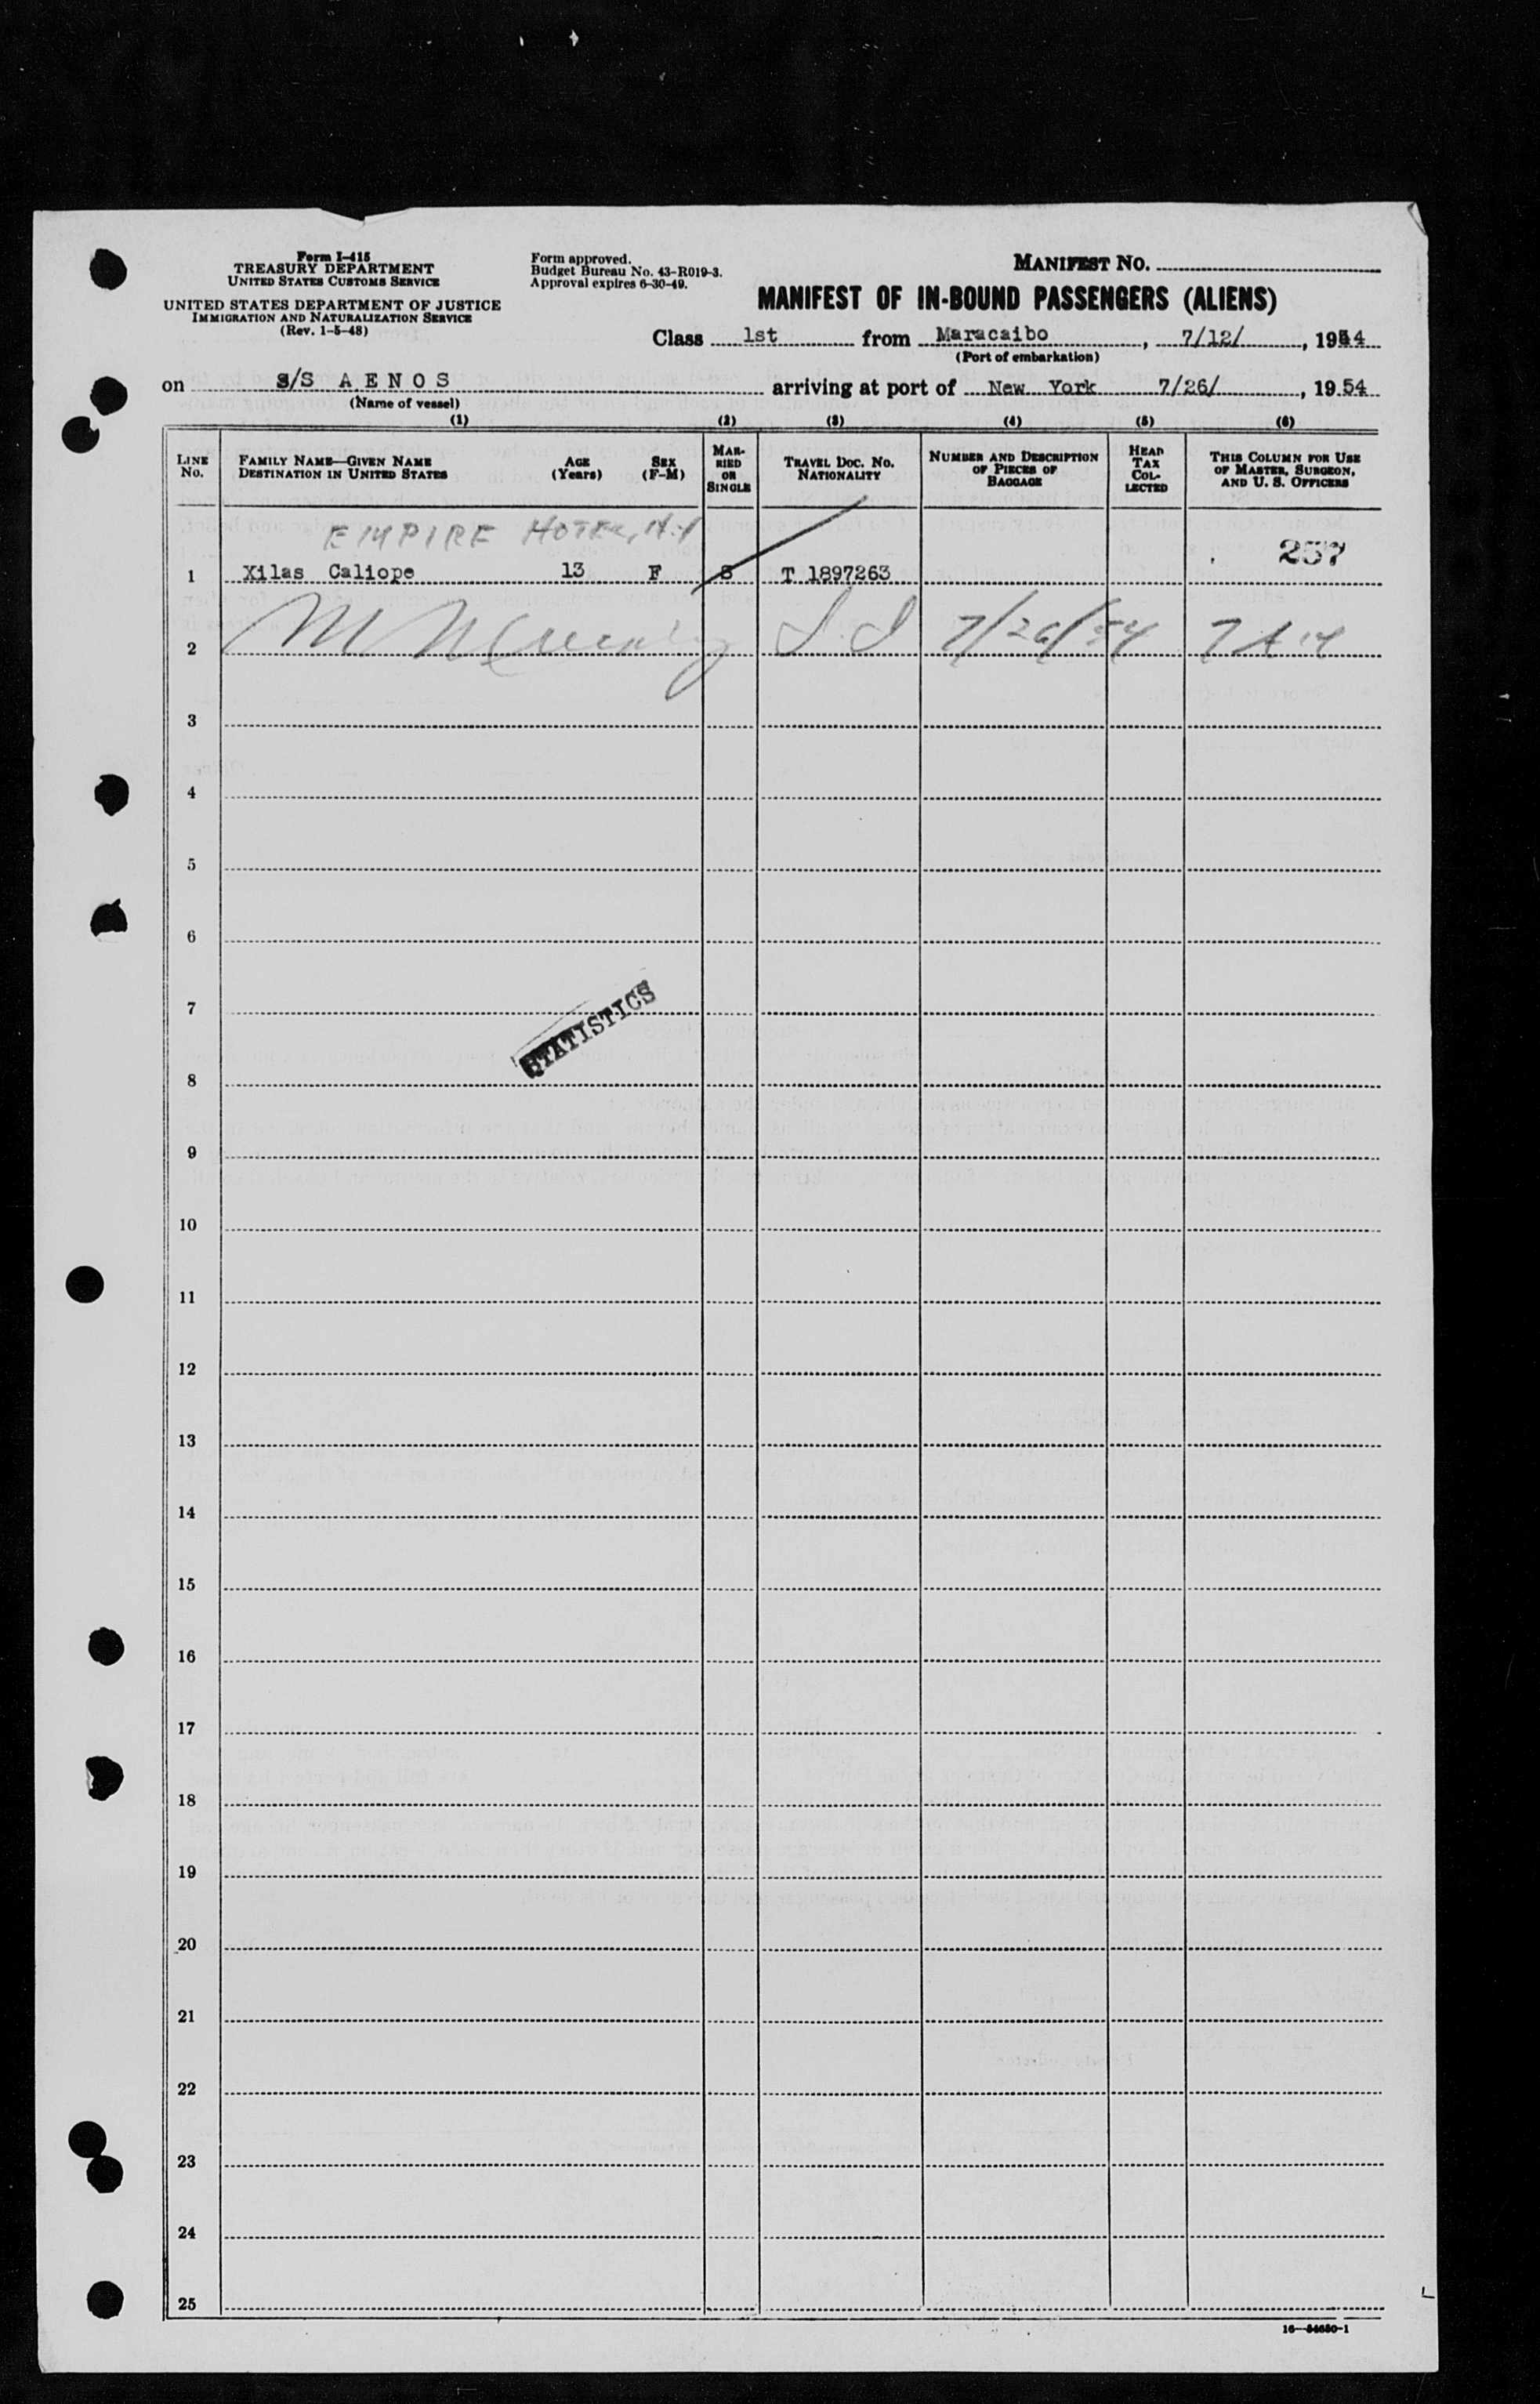 Form I-415
TREASURY DEPARTMENT
UNITED STATES CUSTOMS SERVICE
UNITED STATES DEPARTMENT OF JUSTICE
IMMIGRATION AND NATURALIZATION SERVICE
(Rev. 1-5-48)
Form approved.
Budget Bureau No. 43-R019-3.
Approval expires 6-30-49.
MANIFEST NO.
MANIFEST OF IN-BOUND PASSENGERS (ALIENS)
Class 1st from Maracaibo, 7/12/, 1954
(Port of embarkation)
on S/S AENOS arriving at port of New York 7/26/, 1954
(Name of vessel)
(1) (2) (3) (4) (5) (6)
LINE No. FAMILY NAME—GIVEN NAME DESTINATION IN UNITED STATES AGE (Years) SEX (F-M) MARRIED OR SINGLE TRAVEL DOC. NO. NATIONALITY NUMBER AND DESCRIPTION OF PIECES OF BAGGAGE HEAD TAX COLLECTED THIS COLUMN FOR USE OF MASTER, SURGEON, AND U. S. OFFICERS
EMPIRE HOTEL, N.Y
257
1 Xilas Caliope 13 F S T 1897263
2 7/26/54
3
4
5
6
7
STATISTICS
8
9
10
11
12
13
14
15
16
17
18
19
20
21
22
23
24
25
16—54650-1